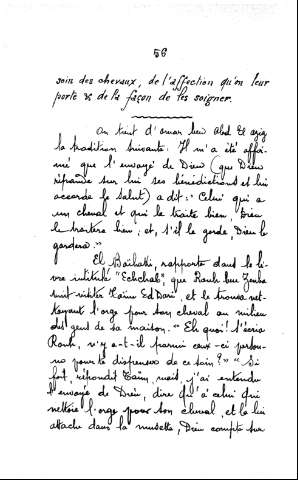 56
soin des chevaux, de l'affection qu'on leur
porte & de la façon de les soigner.
On tient d'Omar ben Abd El Aziz
la tradition suivante: Il m'a été affir-
mé que l'envoyé de Dieu (que Dieu
répande sur lui ses bénédictions et lui
accorde le salut) a dit: "Celui qui a
un cheval et qui le traite bien, Dieu
le traitera bien; et, s'il le garde, Dieu le
gardera."
El Baihakki, rapporte dans le li-
vre intitulé "Echchab", que Rouh ben
vint visiter Taïm Ed Dari, et le trouva net-
toyant l'orge pour son cheval au milieu
des gens de sa maison. "Eh quoi! s'écria
Rouh, n'y a-t-il parmi ceux-ci person-
ne pour te dispenser de ce soin?" "Si
fait, répondit Taïm, mais, j'ai entendu
l'envoyé de Dieu, dire qu'à celui qui
nettoie l'orge pour son cheval, et la lui
attache dans la musette, Dieu compte sur